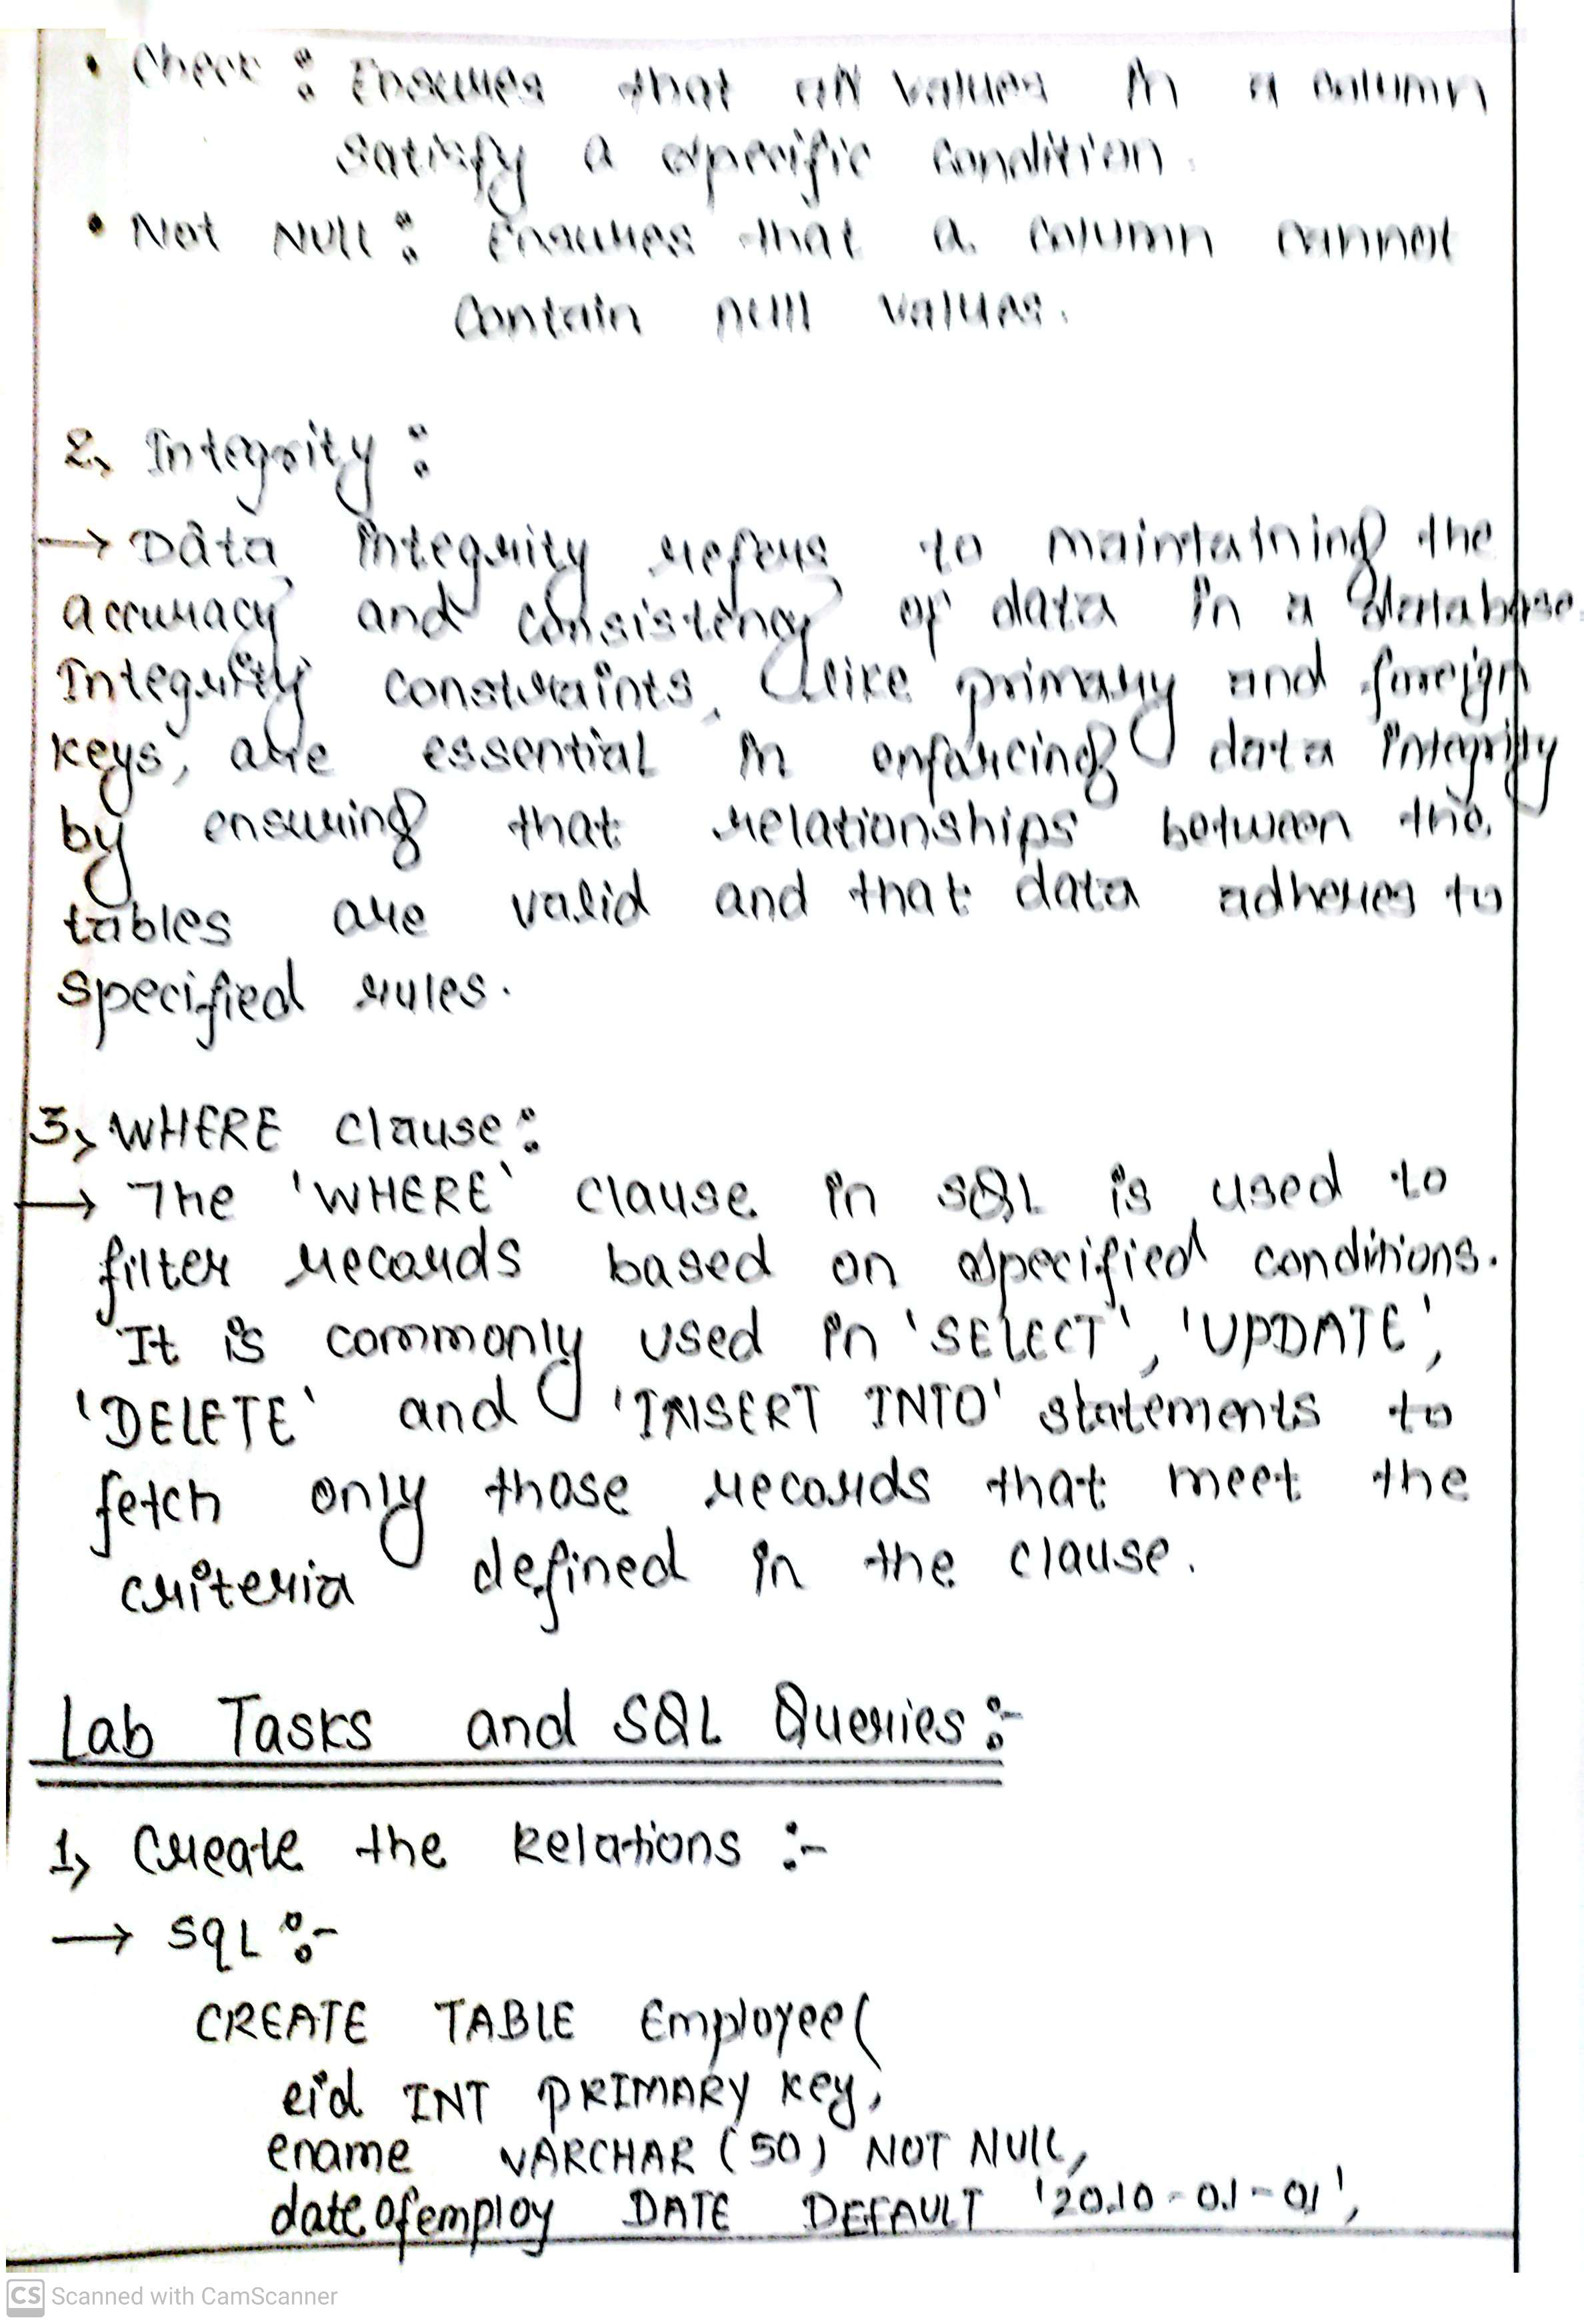 • Check : Ensures that all values in a column
satisfy a specific condition.
• Not Null : Ensures that a column cannot
contain null values.
2, Integrity :
→ Data integrity refers to maintaining the
accuracy and consistency of data in a database.
Integrity constraints, like primary and foreign
keys, are essential in enforcing data integrity
by ensuring that relationships between the
tables are valid and that data adheres to
specified rules.
3, WHERE clause :
→ The 'WHERE' clause in SQL is used to
filter records based on specified conditions.
It is commonly used in 'SELECT', 'UPDATE',
'DELETE' and 'INSERT INTO' statements to
fetch only those records that meet the
criteria defined in the clause.
Lab Tasks and SQL Queries :-
1, Create the Relations :-
→ SQL :-
CREATE TABLE Employee(
eid INT PRIMARY key,
ename VARCHAR (50) NOT NULL,
dateofemploy DATE DEFAULT '2010-01-01',
CS Scanned with CamScanner